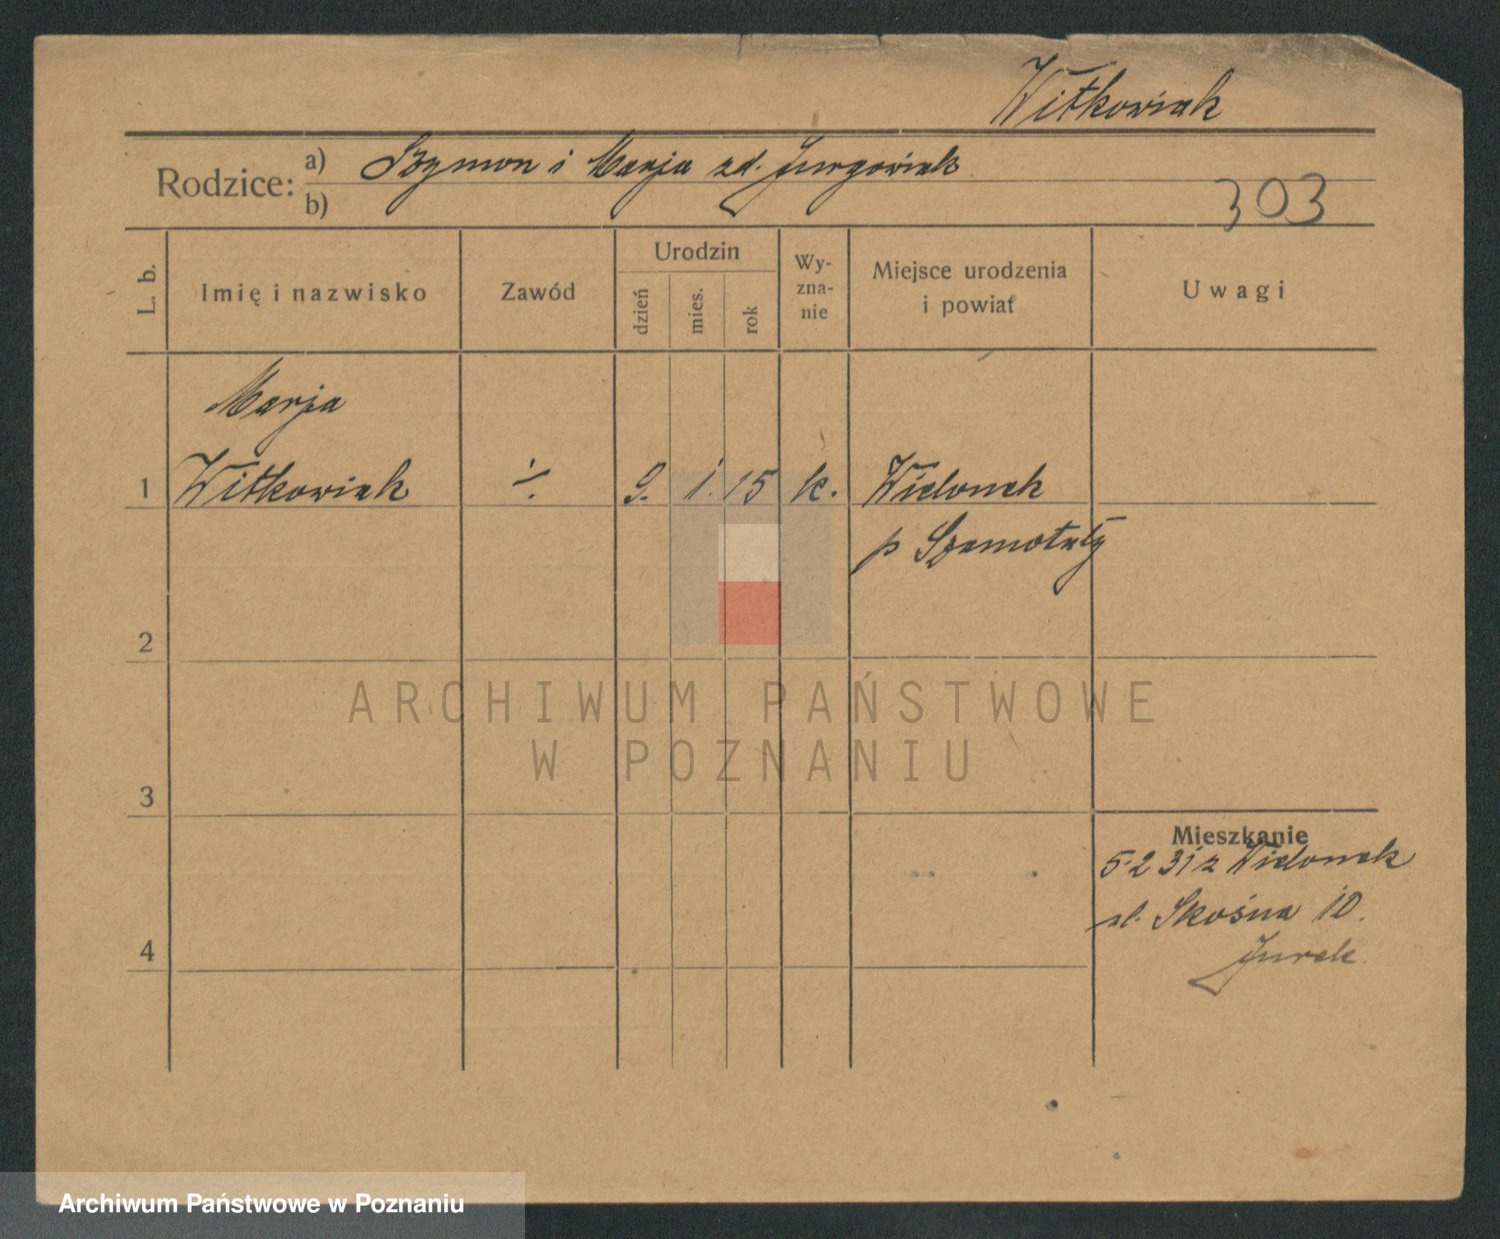 Witkowiak
Rodzice: a) Szymon i Marja zd. Jurgowiak
b)
303
L. b. Imię i nazwisko Zawód Urodzin dzień mies. rok Wyznanie Miejsce urodzenia i powiat Uwagi
Marja
1 Witkowiak ·/. 9. 1. 15 k. Wielonek
p Szamotuły
2
ARCHIWUM PAŃSTWOWE
W POZNANIU
3
Mieszkanie
5·2 31 z Wielonek
ul. Skośna 10.
4 Jurek
Archiwum Państwowe w Poznaniu